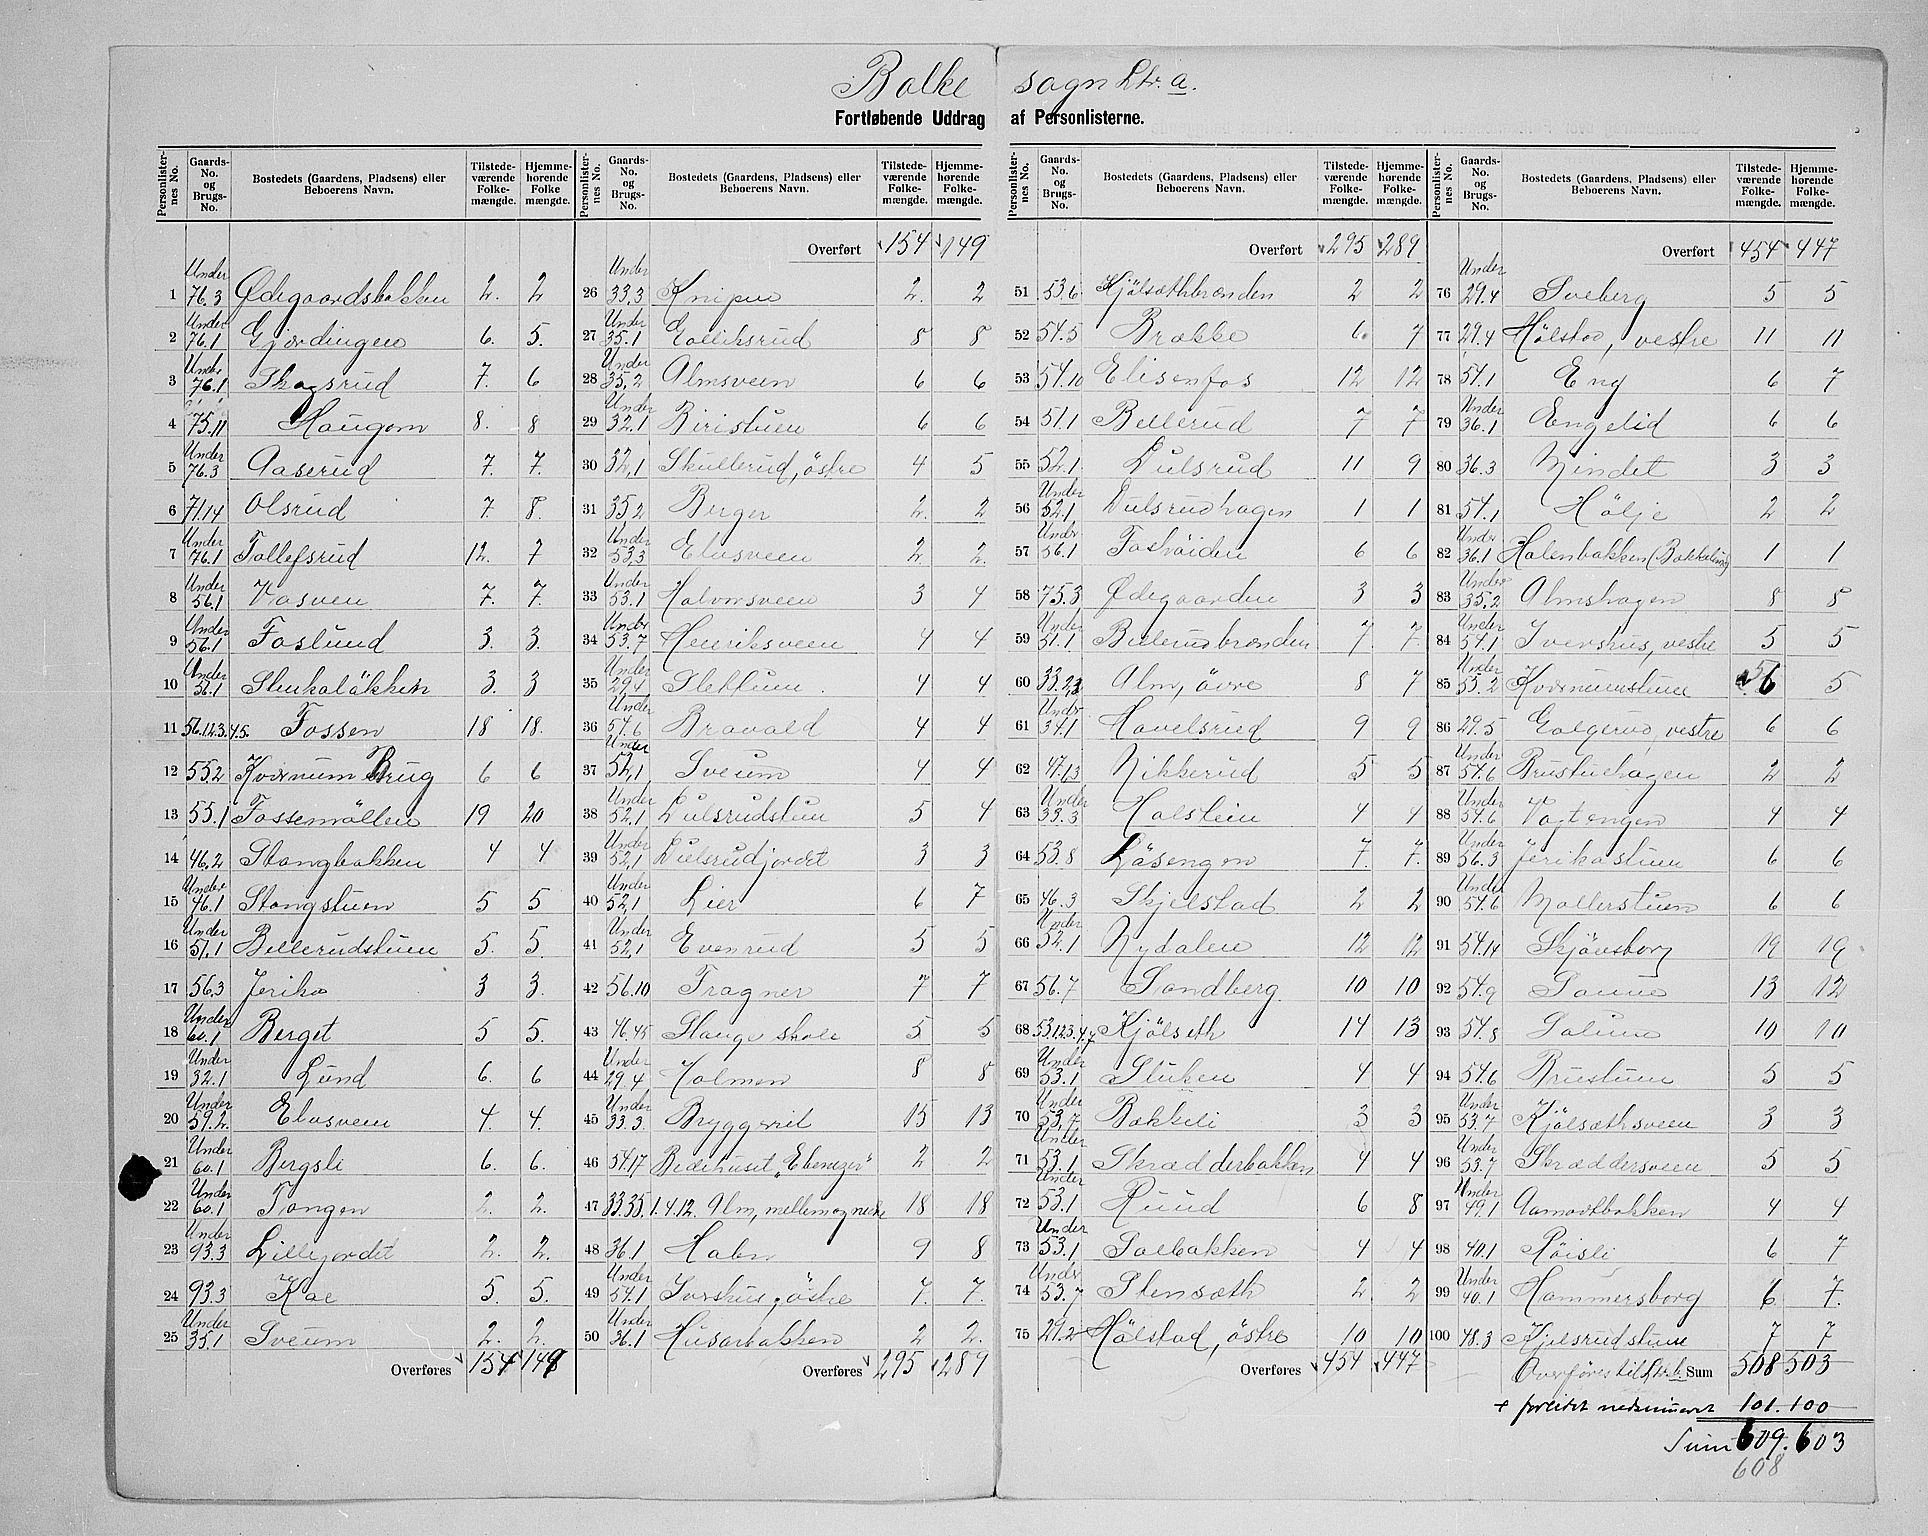 Balke sogn Ltr. a.
Fortløbende Uddrag af Personlisterne.
Personlisternes No. Gaards-No. og Brugs-No. Bostedets (Gaardens, Pladsens) eller Beboerens Navn. Tilstedeværende Folkemængde. Hjemmehørende Folkemængde.
1 Under 76.3 Ødegaardsbakken 2. 2
2 Under 76.1 Gjørdingen 6. 5.
3 Under 76.1 Skogsrud 7. 6
4 75.11 Haugom 8. 8
5 Under 76.3 Aaserud 7. 7.
6 71.14 Olsrud 7. 8.
7 Under 76.1 Tollefsrud 12. 7
8 Under 56.1 Vasveen 7. 7.
9 Under 56.1 Foslund 3. 3.
10 Under 56.1 3. 3
11 56.1.2.3.4.5. Fossen 18 18.
12 55.2 Kværnum Brug 6 6
13 55.1 Fossemøllen 19 20
14 46.2 Stangbakken 4 4
15 Under 46.1 Stangstuen 5 5
16 Under 51.1 Bellerudstuen 5. 5.
17 56.3 Jeriko 3 3.
18 Under 60.1 Berget 5 5.
19 Under 32.1 Lund 6. 6
20 Under 59.2. Elvesveen 4. 4.
21 Under 60.1 Bergsli 6. 6.
22 Under 60.1 Tangen 2. 2.
23 Under 93.3 Lillejordet 2. 2.
24 93.3 Kae 5. 5.
25 Under 35.1 Sveum 2. 2.
Overføres 154 149
Overført 154 149
26 Under 33.3 Knipen 2. 2
27 Under 35.1 8 8
28 Under 35.2 Almsveen 6 6
29 Under 32.1 Biristuen 6 6
30 32.1 Skullerud, östre 4 5
31 35.2 Berger 2. 2
32 Under 53.3 Elvesveen 2. 2.
33 Under 53.1 Halvorsveen 3 4
34 Under 53.7 Henriksveen 4 4
35 Under 29.4 Slettum 4 4
36 Under 54.6 Bravald 4 4
37 Under 52.1 Sveum 4 4
38 Under 52.1 Dulsrudstuen 5 4
39 Under 52.1 Dulsrudjordet 3 3
40 Under 52.1 Lier 6 7
41 Under 52.1 Evenrud 5 5
42 56.10 Fragner 7 7
43 46.45 Stange skole 5 5
44 Under 29.4 Holmen 8 8
45 Under 33.3. Byggeriet 15 13
46 54.17 Bedehuset "Ebenezer" 2 2
47 33.35.1.4.12. Alm, mellem og nedre 18 18
48 36.1 Holen 9 8
49 Under 54.1 Ivershus, östre 7. 7.
50 Under 36.1 Husarbakken 2 2.
Overføres 295 289
Overført 295 289
51 53.6 Kjölsæthbrænden 2 2
52 54.5 Brække 6. 7
53 54.10 Elisenfos 12 12
54 51.1 Bellerud 7 7
55 52.1. Dulsrud 11 9
56 Under 52.1 Dulsrudhagen 1 1
57 Under 56.1 Fosheiden 6 6
58 75.3 Ødegaarden 3 3
59 Under 51.1 Bellerudbrænden 7. 7.
60 33.2.3 Alm, övre 8 7
61 Under 34.1 Havelsrud 9 9
62 47.13 Nikkerud 5 5
63 Under 33.3 Holstein 4 4
64 53.8 Läsengen 7. 7.
65 46.3 Skjelstad 2 2
66 Under 52.1 Nydalen 12 12
67 56.7 Sandberg 10 10
68 53.1.2.3.4.7 Kjölseth 14 13
69 Under 53.1 Stuken 4 4
70 Under 53.7 Bakkeli 3 3
71 Under 53.1 Skrædderbakken 4 4
72 Under 53.1 Ruud 6 8
73 Under 53.1 Solbakken 4 4
74 Under 53.7 Stensæth 2 2
75 29.2 Hölstad, östre 10 10
Overføres 454 447
Overført 454 447
76 Under 29.4 Sveberg 5 5
77 29.4 Hölstad, vestre 11 11
78 54.1 Eng 6 7
79 Under 36.1 Engelid 6 6
80 36.3 Mindet 3 3
81 54.1 Hölje 2 2
82 Under 36.1 Holenbakken 1 1
83 Under 35.2 Almshagen 8 8
84 Under 54.1 Ivershus, vestre 5 5
85 Under 55.2 Kværnumstuen 6 5
86 29.5 vestre 6 6
87 Under 54.6 Brustuehagen 2 2
88 Under 54.6 Vortengen 4 4
89 Under 56.3 Jerikostuen 6 6
90 Under 54.6 Mollerstuen 6 6
91 54.14 Skjönsborg 19 19
92 54.9 13 12
93 54.8 Solum 10 10
94 54.6 Brustuen 5 5
95 Under 53.7 Kjölsæthsveen 3 3
96 Under 53.7 Skræddersveen 5 5
97 Under 49.1 Aamodtbakken 4 4
98 40.1 Röisli 6 7
99 Under 40.1 Hammersborg 6 7.
100 48.3 Kjelsrudstuen 7 7
Overføres til Ltr. b. Sum 508 503
+ 101. 100
Sum 609. 603
608